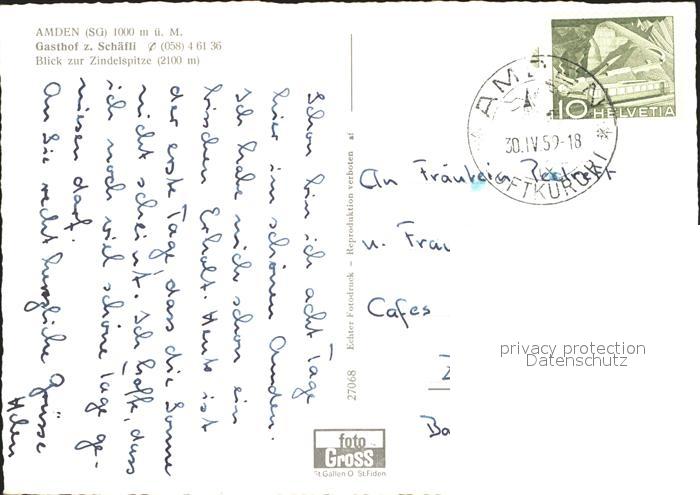 AMDEN (SG) 1000 m ü. M.
Gasthof z. Schäfli ✆ (058) 4 61 36
Blick zur Zindelspitze (2100 m)
Schon bin ich acht Tage
hier im schönen Amden.
Ich habe mich schon ein
bischen Erholt. Heute ist
der erste Tage dass die Sonne
nicht scheint. Ich hoffe, dass
ich noch viel schöne Tage ge-
niesen darf.
An Sie recht herzliche Grüsse
27068 Echter Fotodruck – Reproduktion verboten af
foto
Gross
St. Gallen O St. Fiden
10 HELVETIA
AMDEN
30.IV.59-18
LUFTKURORT
An Fräulein
u. Frau
Cafes
Ba
privacy protection
Datenschutz